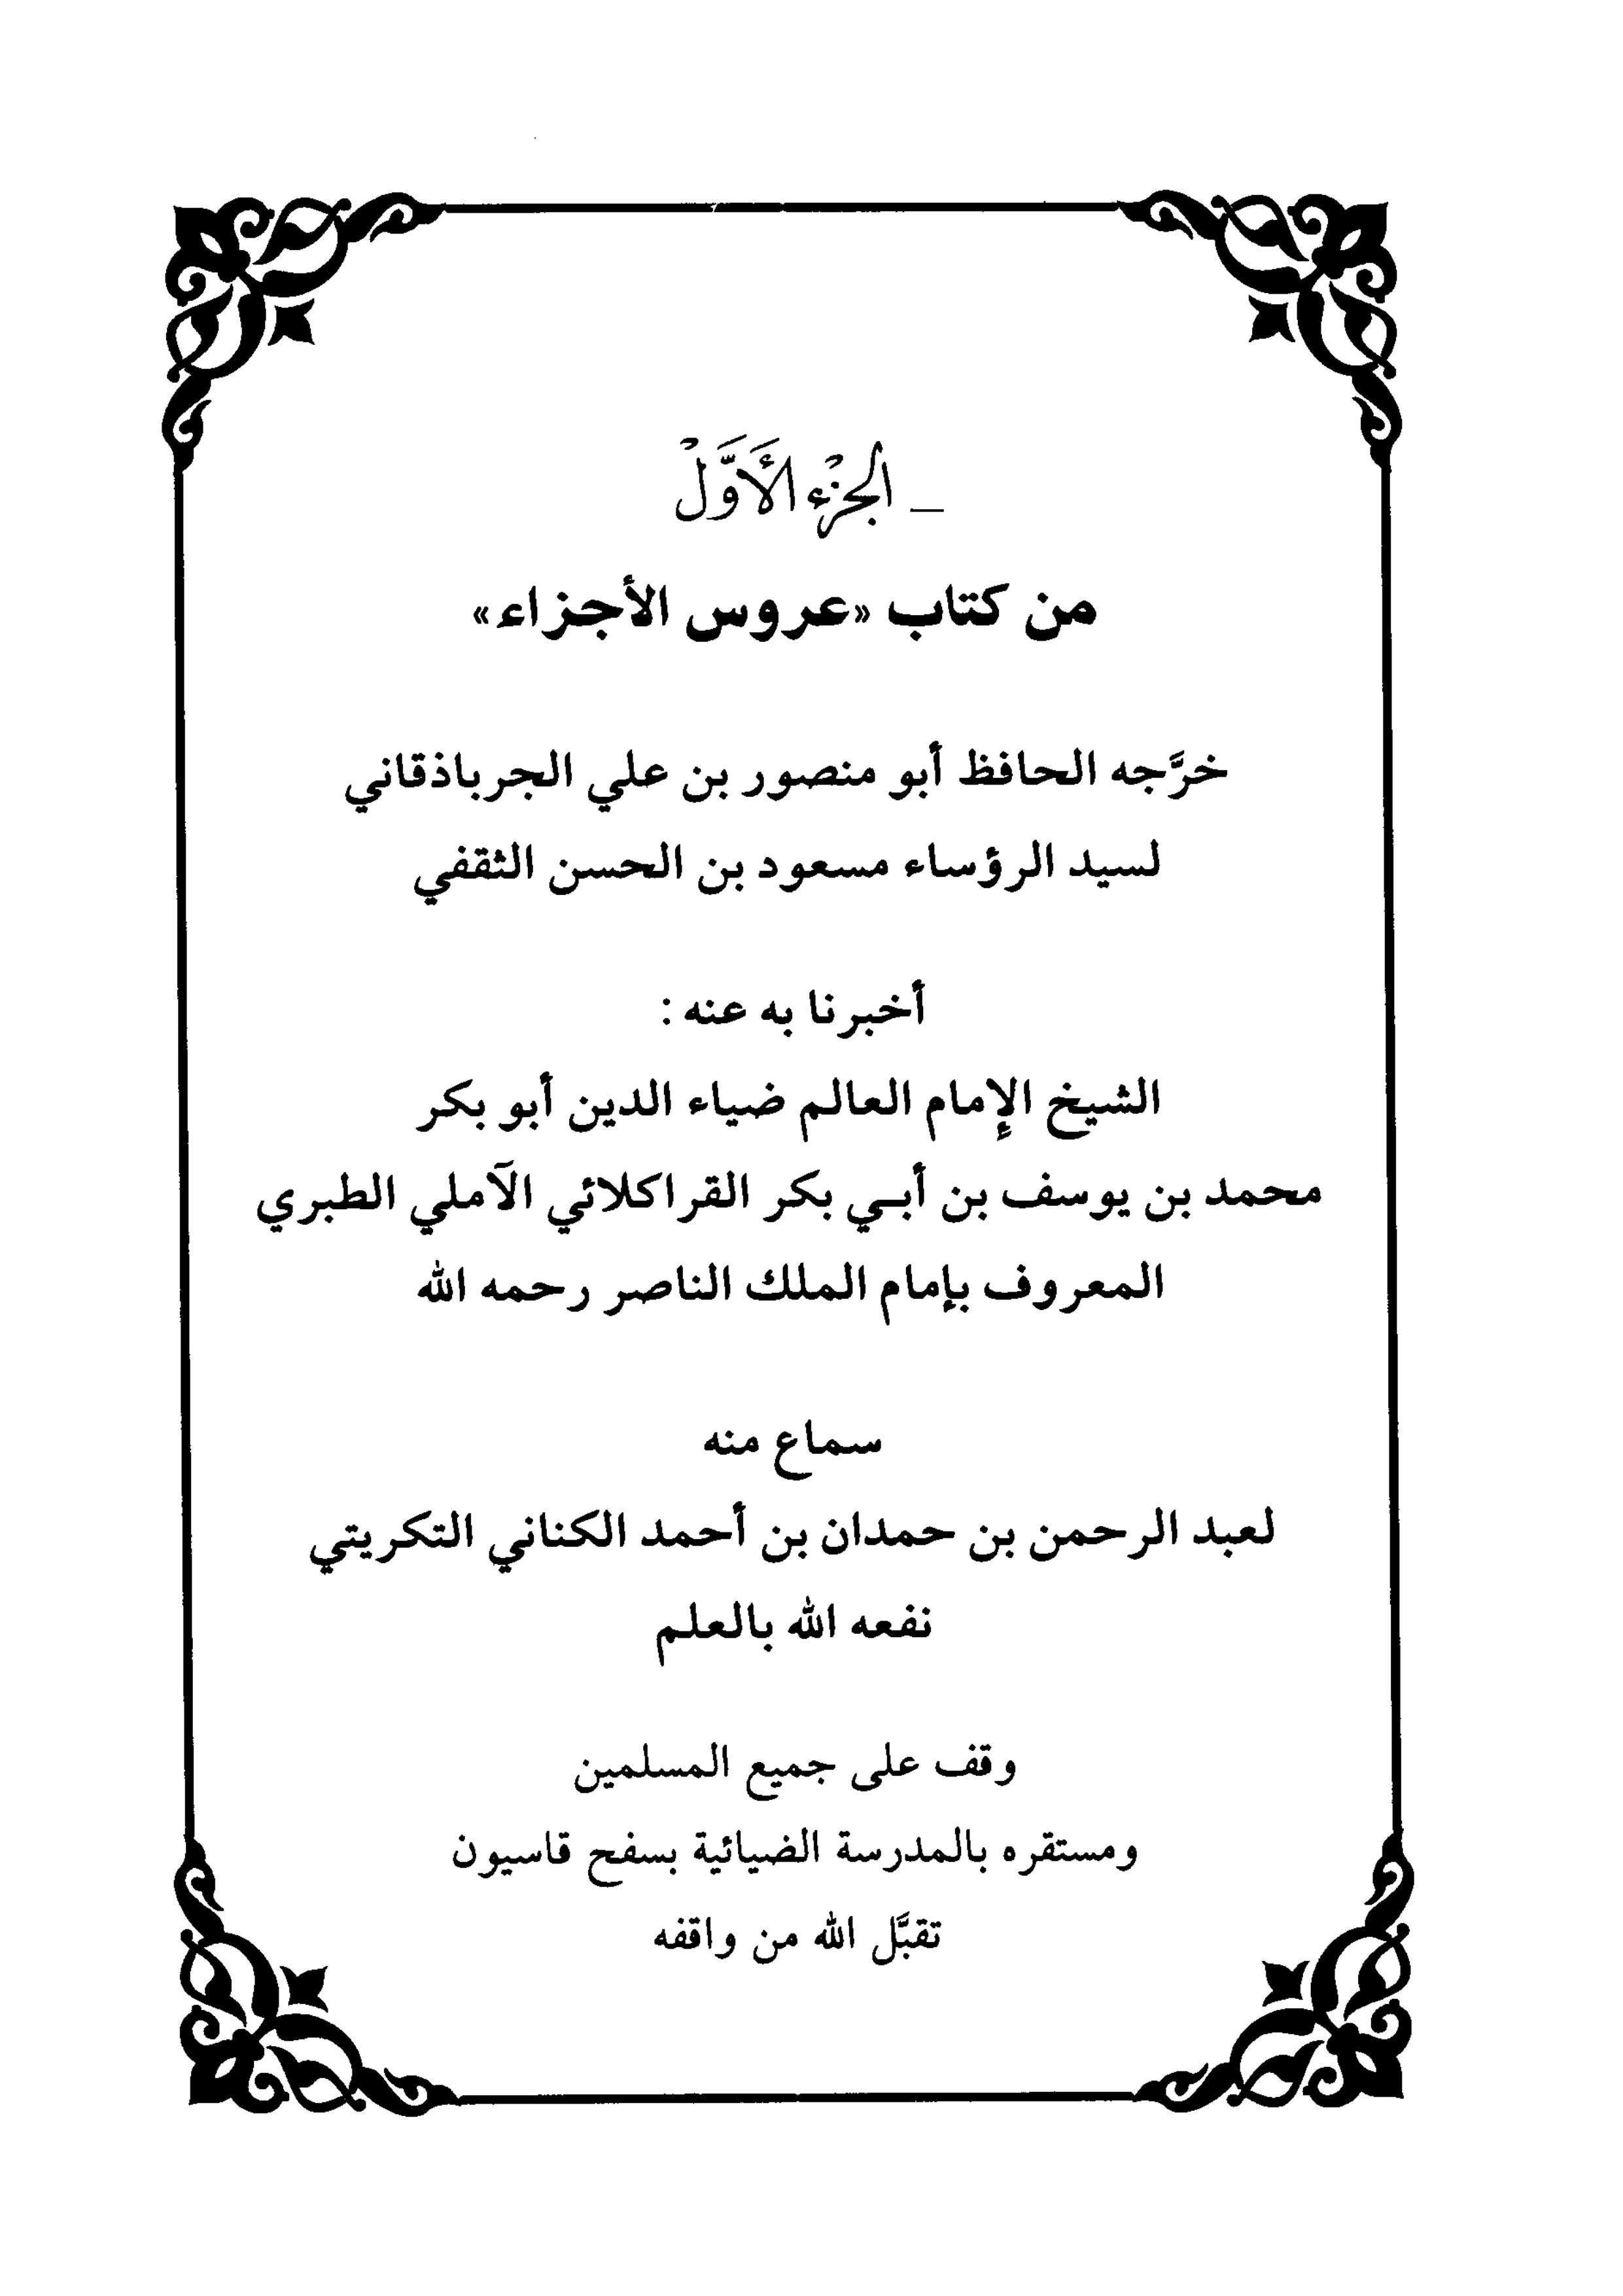 ـ الجزء الأَوَّلْ
من كتاب «عروس الأجزاء»
خرَّجه الحافظ أبو منصور بن علي الجرباذقاني
لسيد الرؤساء مسعود بن الحسن الثقفي
أخبرنا به عنه :
الشيخ الإمام العالم ضياء الدين أبو بكر
محمد بن يوسف بن أبـي بكر القراكلائي الآملي الطبري
المعروف بإمام الملك الناصر رحمه الله
سماع منه
لعبد الرحمن بن حمدان بن أحمد الكناني التكريتي
نفعه الله بالعلم
وقف على جميع المسلمين
ومستقره بالمدرسة الضيائية بسفح قاسيون
تقبَّل الله من واقفه